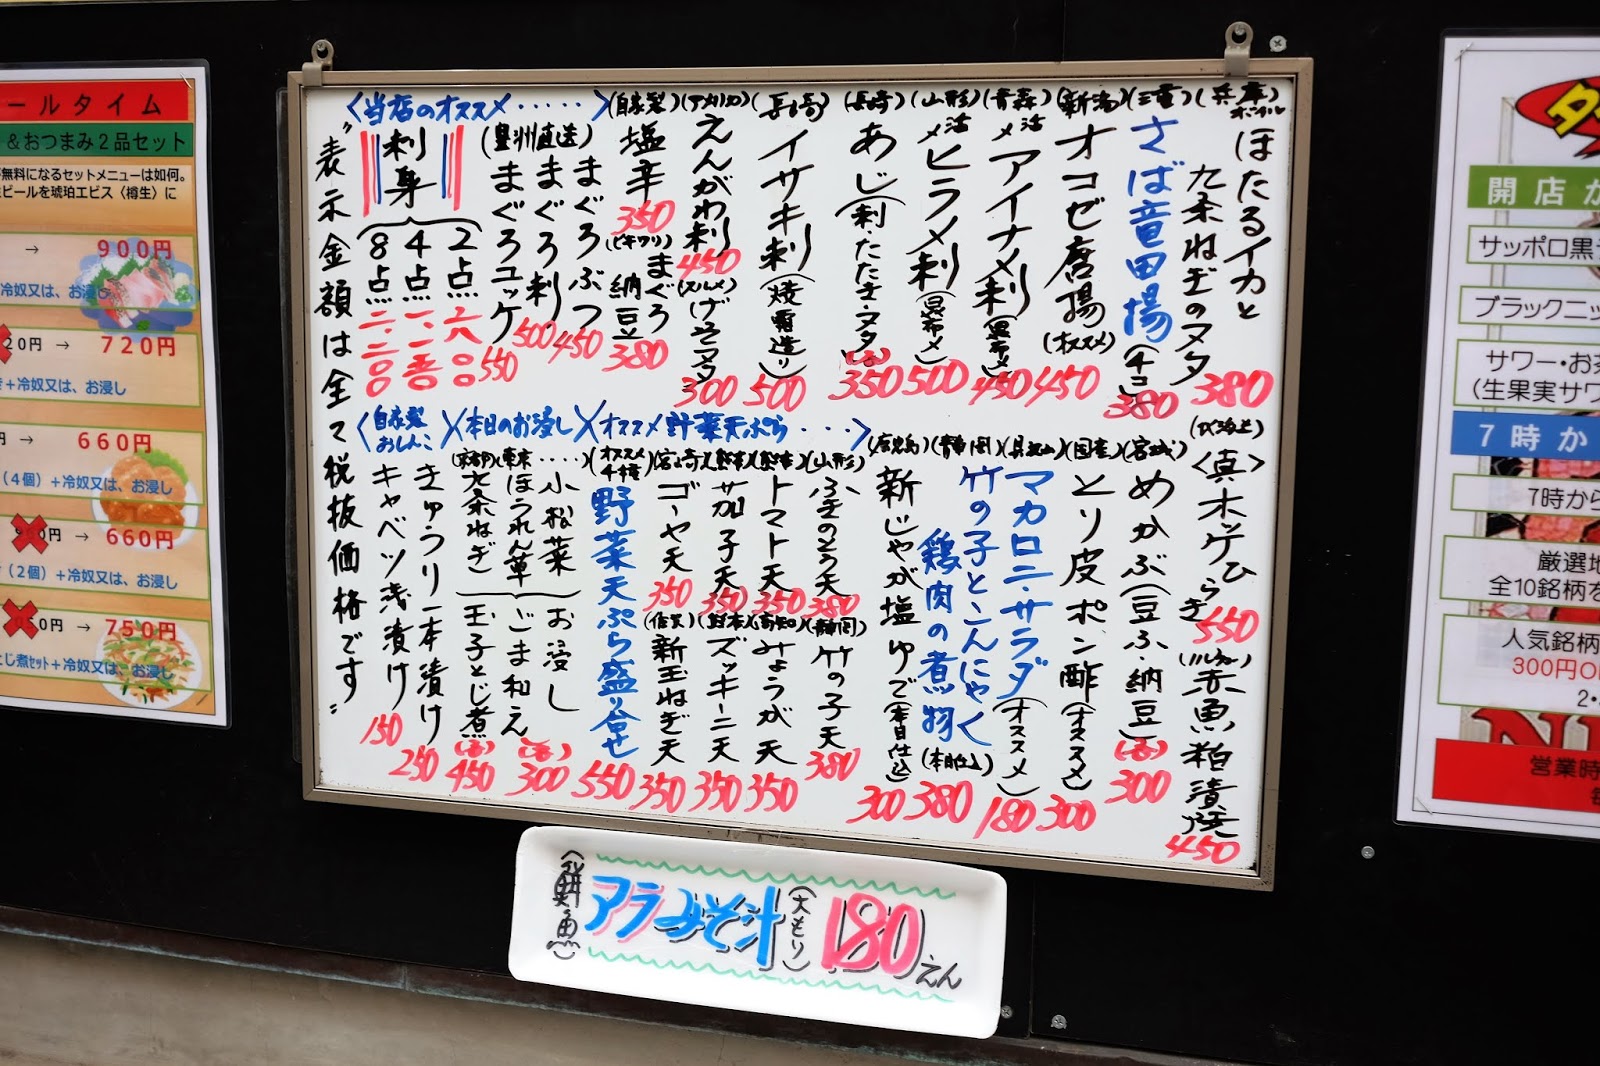 〈当店のオススメ・・・・・・〉
(兵庫)ボイル ほたるイカと
九条ねぎのヌタ 380
(三重) さば竜田揚(チコ) 380
(新潟) オコゼ唐揚(オススメ) 450
(青森) 活〆アイナメ刺(昆布〆) 450
(山形) 活〆ヒラメ刺(昆布〆) 500
(長崎) あじ(刺たたき・ヌタ) 350
(長崎) イサキ刺(焼霜造り) 500
(アメリカ) えんがわ刺 450
(スルメ) げそヌタ 300
(自家製) 塩辛 350
(ヒキワリ) まぐろ納豆 380
(豊洲直送)
まぐろぶつ 450
まぐろ刺 500
まぐろユッケ 550
刺身
2点
4点
8点
〈真〉ホッケひらき 550
(ノルウェー) 赤魚粕漬焼 450
(宮城) めかぶ(豆ふ・納豆) 300
(国産) とり皮ポン酢(オススメ) 300
マカロニ・サラダ(オススメ) 180
(静岡) 竹の子とこんにゃく
鶏肉の煮物(本日仕込) 380
(鹿児島) 新じゃが塩ゆで(本日仕込) 300
〈オススメ野菜天ぷら・・・・〉
(山形) ふきのとう天 380
(静岡) 竹の子天 380
(熊本) トマト天 350
(高知) みょうが天 350
(熊本) 茄子天 350
(熊本) ズッキーニ天 350
(宮崎) ゴーヤ天 350
新玉ねぎ天 350
(オススメ4種) 野菜天ぷら盛り合せ 550
〈本日のお浸し〉
(東京・・・・)
小松菜
ほうれん草
(京都) 九条ねぎ
お浸し
ごま和え 300
玉子とじ煮 450
〈自家製おしんこ〉
きゅうり一本漬け 250
キャベツ浅漬け 150
"表示金額は全て税抜価格です"
(鮮魚) アラみそ汁(大もり) 180えん
ールタイム
&おつまみ2品セット
無料になるセットメニューは如何。
ビールを琥珀エビス〈樽生〉に
→ 900円
冷奴又は、お浸し
20円 → 720円
+冷奴又は、お浸し
円 → 660円
(4個)+冷奴又は、お浸し
円 → 660円
(2個)+冷奴又は、お浸し
50円 → 750円
とじ煮セット+冷奴又は、お浸し
開店か
サッポロ黒
ブラックニッ
サワー・お茶
(生果実サワ
7時か
7時から
厳選地
全10銘柄を
人気銘柄
300円O
営業時